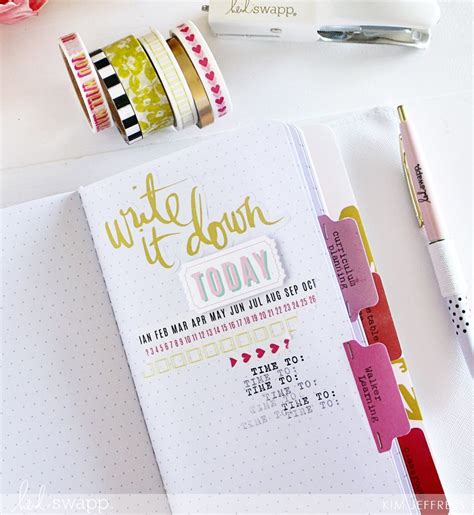 heidi swapp.
write
it down
TODAY
JAN FEB MAR APR MAY JUN JUL AUG SEP OCT
1 2 3 4 5 6 7 8 9 10 11 12 13 14 15 16 17 18 19 20 21 22 23 24 25 26
TIME TO:
TIME TO:
TIME TO:
TIME TO:
TIME TO:
TIME TO:
TIME TO:
curriculum
planning
Walker
Learning
heidi swapp.
KIM JEFFRE